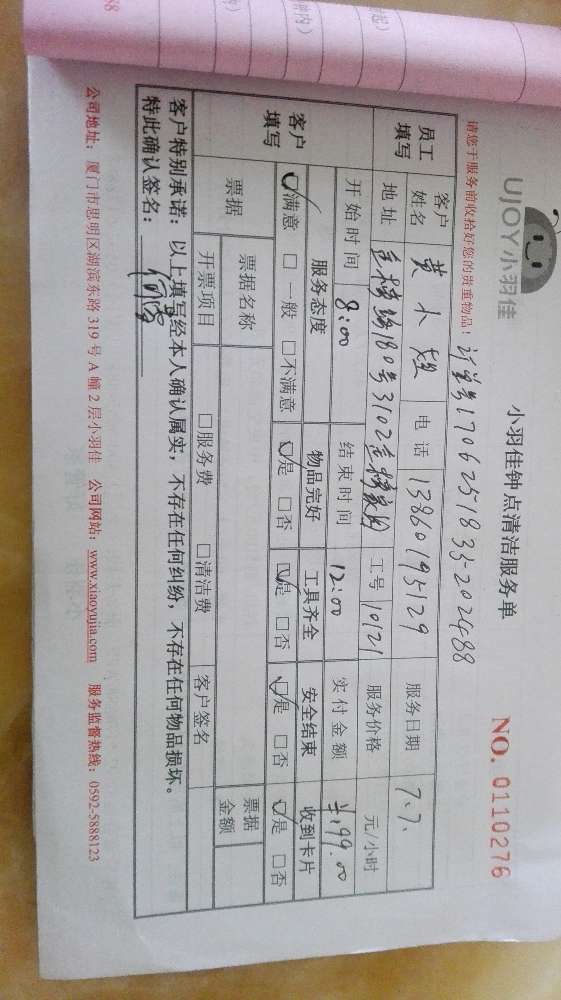 UJOY小羽佳
小羽佳钟点清洁服务单
NO. 0110276
请您于服务前收拾好您的贵重物品！ 订单号170625183
员工填写
客户姓名 黄小 电话 13860195129 服务日期 7.7.
地址 180号3102 工号 10121 服务价格 元/小时
开始时间 8:00 结束时间 12:00 实付金额 ¥199.00
客户填写
服务态度 物品完好 工具齐全 安全结束 收到卡片
☑满意 □一般 □不满意 ☑是 □否 ☑是 □否 ☑是 □否 ☑是 □否
票据 票据名称 票据金额
开票项目 □服务费 □清洁费 客户签名
客户特别承诺：以上填写经本人确认属实，不存在任何纠纷，不存在任何物品损坏。
特此确认签名：
公司地址：厦门市思明区湖滨东路319号A幢2层小羽佳 公司网站：www.xiaoyujia.com 服务监督热线：0592-5888123